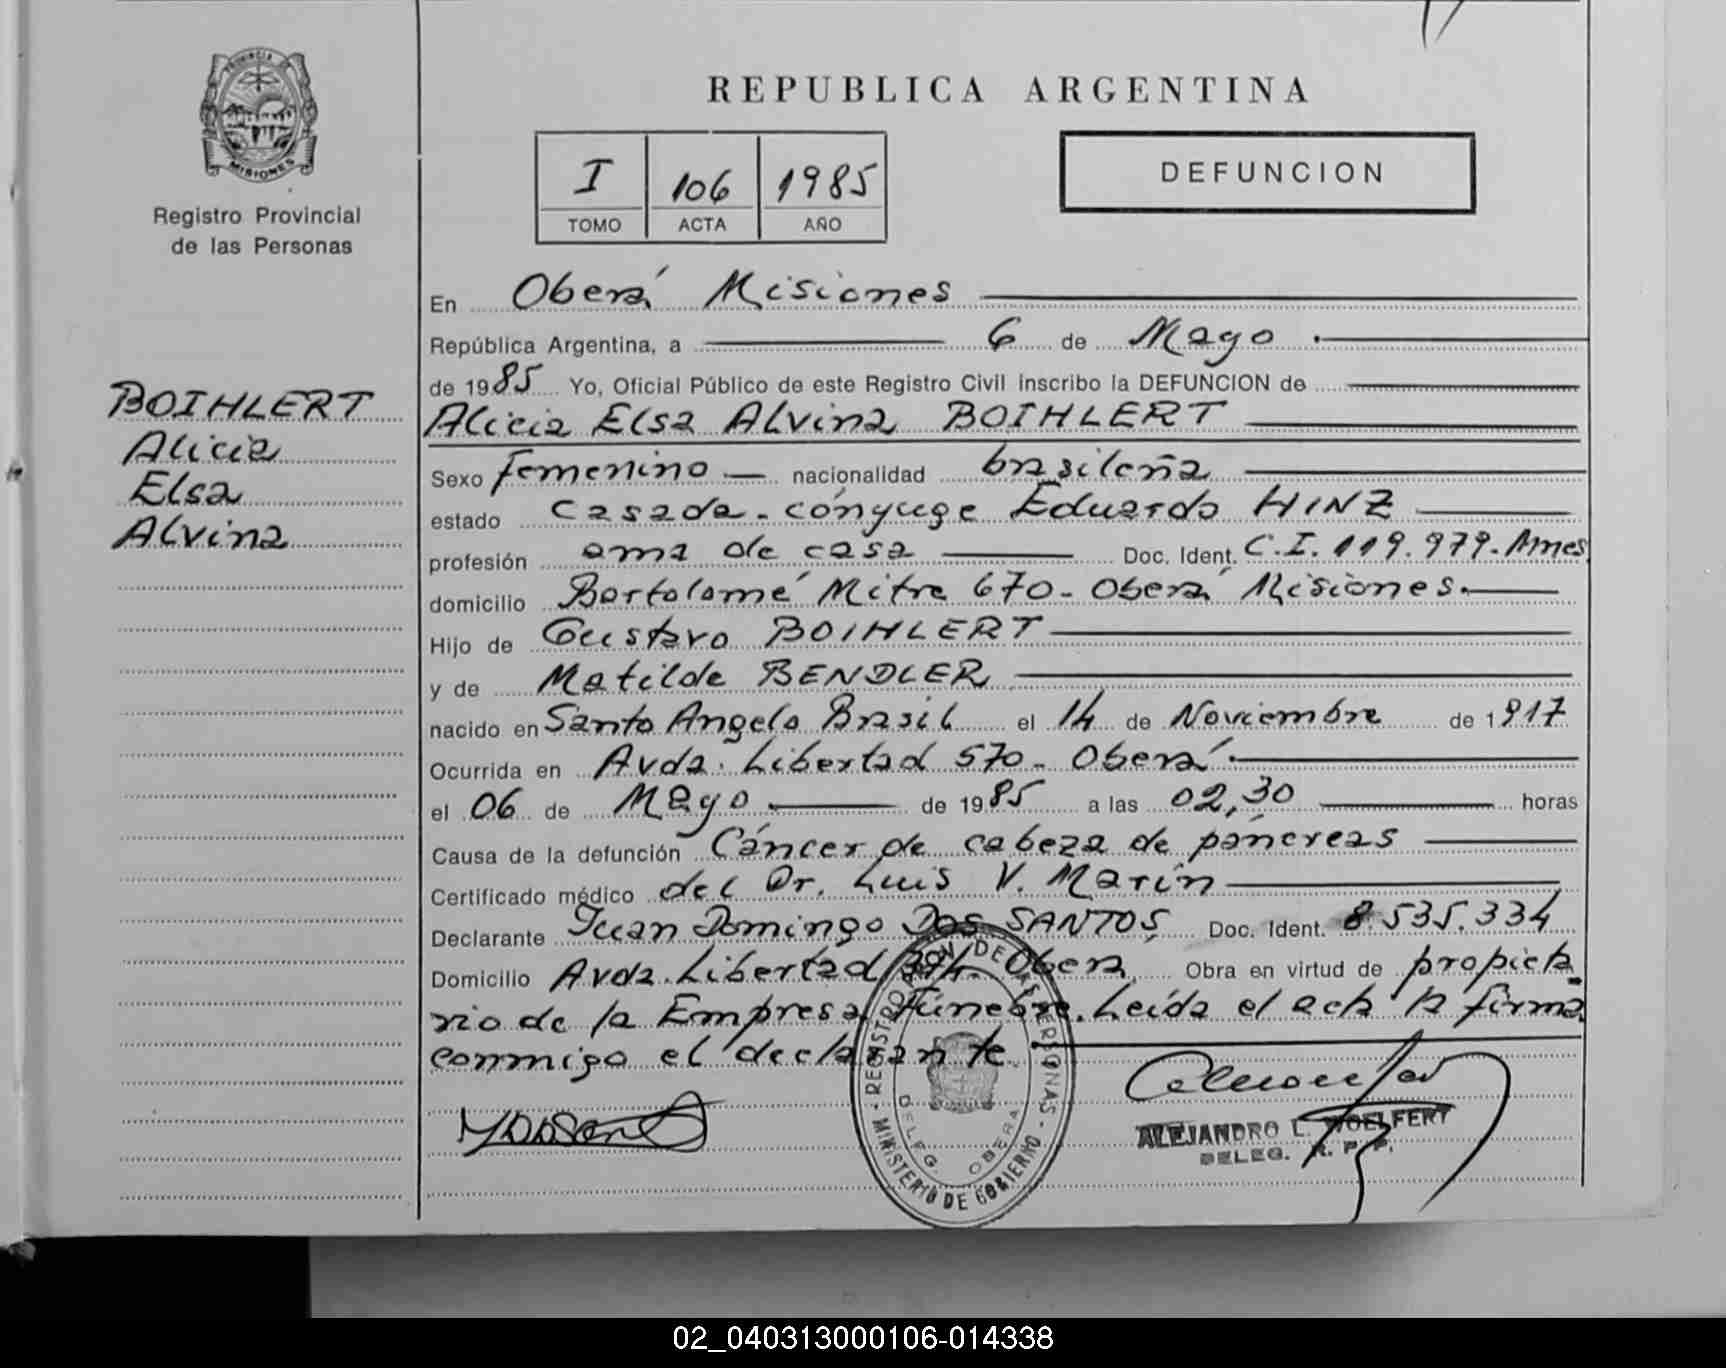 REPUBLICA ARGENTINA
PROVINCIA DE
MISIONES
Registro Provincial
de las Personas
I 106 1985
TOMO ACTA AÑO
DEFUNCION
BOIHLERT
Alicia
Elsa
Alvina
En Oberá Misiones
República Argentina, a 6 de Mayo
de 1985 Yo, Oficial Público de este Registro Civil inscribo la DEFUNCION de
Alicia Elsa Alvina BOIHLERT
Sexo femenino nacionalidad brasileña
estado casada - cónyuge Eduardo HINZ
profesión ama de casa Doc. Ident. C.I. 119.979. Mnes
domicilio Bartolomé Mitre 670 - Oberá Misiones.
Hijo de Gustavo BOIHLERT
y de Matilde BENDLER
nacido en Santo Angelo Brasil el 14 de Noviembre de 1917
Ocurrida en Avda. Libertad 570 - Oberá
el 06 de Mayo de 1985 a las 02,30 horas
Causa de la defunción Cáncer de cabeza de páncreas
Certificado médico del Dr. Luis V. Marín
Declarante Juan Domingo DOS SANTOS Doc. Ident. 8.535.334
Domicilio Avda. Libertad Oberá Obra en virtud de propieta-
rio de la Empresa Fúnebre. Leída el acta la firma
conmigo el declarante
REGISTRO PROV. DE LAS PERSONAS
MINISTERIO DE GOBIERNO
DELEG. OBERA
ALEJANDRO L. WOELFERT
DELEG. R. P. P.
02_040313000106-014338